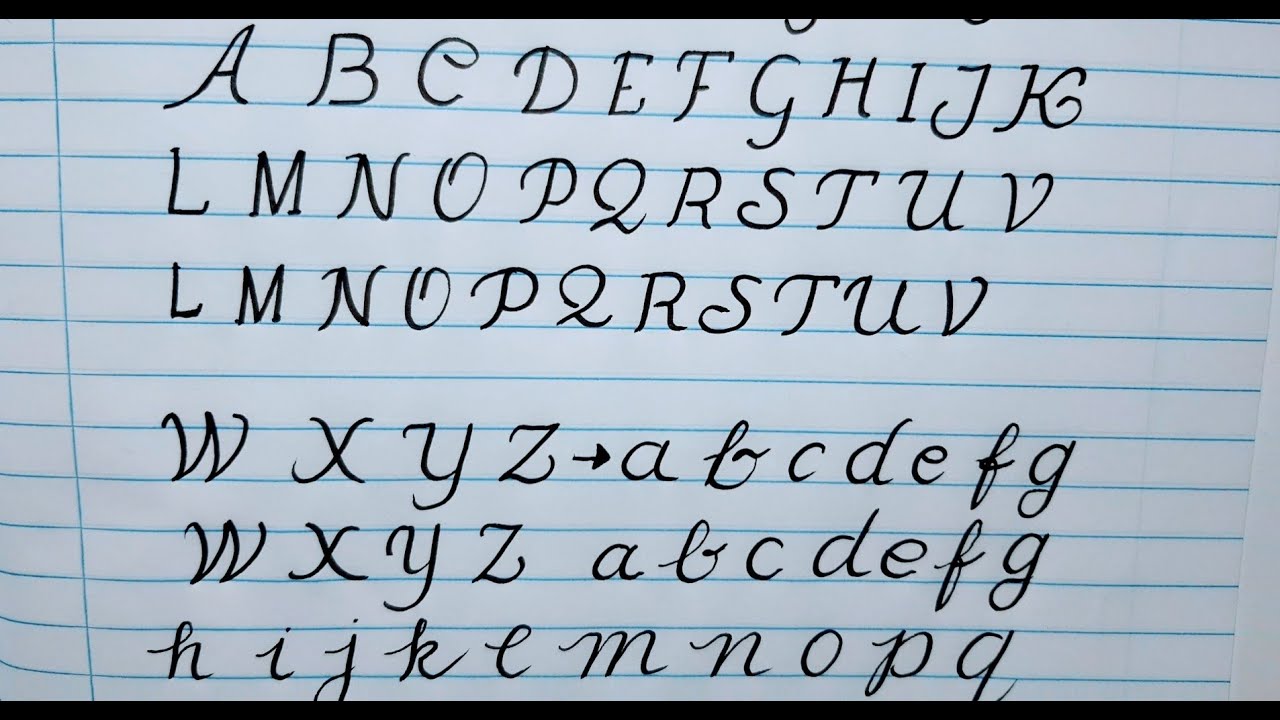 A B C D E F G H I J K
L M N O P Q R S T U V
L M N O P Q R S T U V
W X Y Z → a b c d e f g
W X Y Z a b c d e f g
h i j k l m n o p q